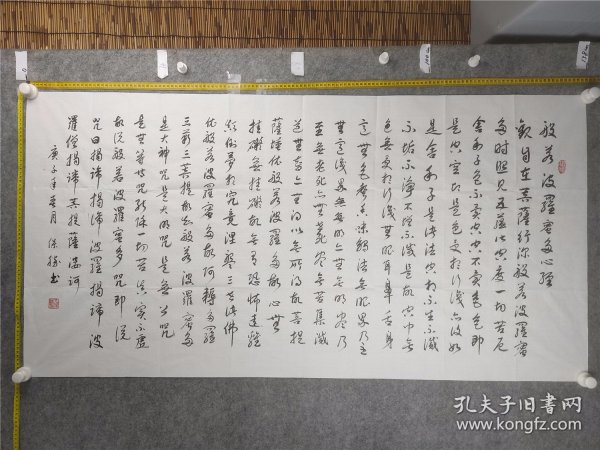 般若波羅蜜多心經
觀自在菩薩行深般若波羅蜜
多時照見五蘊皆空度一切苦厄
舍利子色不異空空不異色色即
是空空即是色受想行識亦復如
是舍利子是諸法空相不生不滅
不垢不淨不增不減是故空中無
色無受想行識無眼耳鼻舌身
意無色聲香味觸法無眼界乃至
無意識界無無明亦無無明盡乃
至無老死亦無老死盡無苦集滅
道無智亦無得以無所得故菩提
薩埵依般若波羅蜜多故心無
挂礙無挂礙故無有恐怖遠離
顛倒夢想究竟涅槃三世諸佛
依般若波羅蜜多故阿耨多羅
三藐三菩提故知般若波羅蜜多
是大神咒是大明咒是無上咒
是無等等咒能除一切苦真實不虛
故說般若波羅蜜多咒即說
咒曰揭諦揭諦波羅揭諦波
羅僧揭諦菩提薩婆訶
庚子年夏月保書
孔夫子旧书网
www.kongfz.com